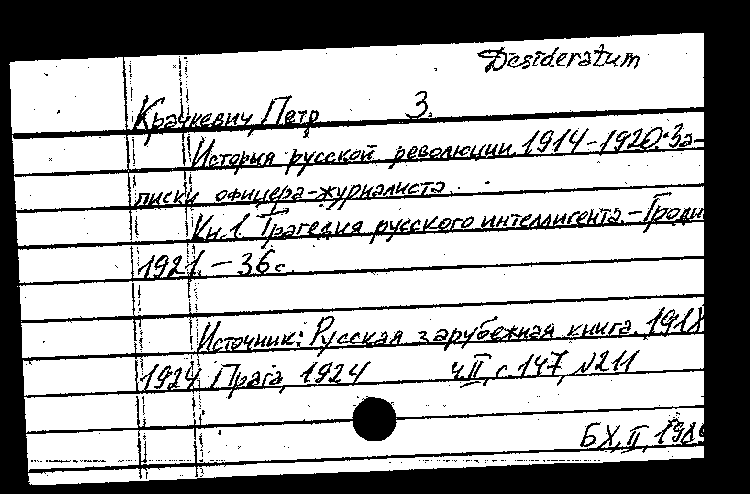 Desideratum
Крачкевич, Петр 3.
История русской революции. 1914-1920. За-
писки офицера-журналиста.
Кн. 1. Трагедия русского интеллигента. - Гродн
1921. - 36 с.
Источник: Русская зарубежная книга. 1918
1924 Прага, 1924 ч. II, с. 147, №211
БХ, II, 198